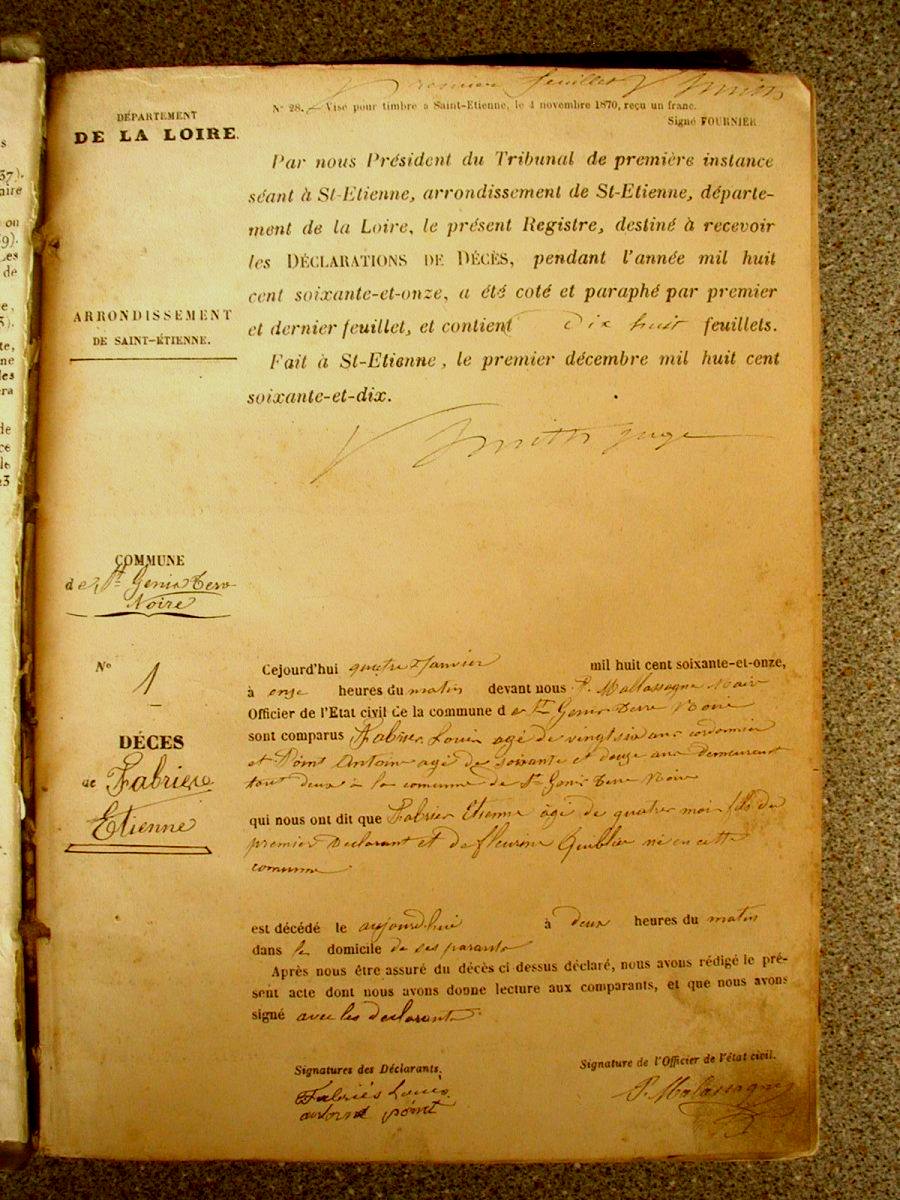 Premier feuillet V Smith
DÉPARTEMENT
DE LA LOIRE.
N° 28. Visé pour timbre à Saint-Etienne, le 4 novembre 1870, reçu un franc.
Signé FOURNIER
Par nous Président du Tribunal de première instance
séant à St-Etienne, arrondissement de St-Etienne, départe-
ment de la Loire, le présent Registre, destiné à recevoir
les DÉCLARATIONS DE DÉCÈS, pendant l'année mil huit
cent soixante-et-onze, a été coté et paraphé par premier
et dernier feuillet, et contient Dix huit feuillets.
Fait à St-Etienne, le premier décembre mil huit cent
soixante-et-dix.
ARRONDISSEMENT
DE SAINT-ÉTIENNE.
V Smith juge
COMMUNE
de St Genis Terre
Noire
N° 1
DÉCES
de Fabriere
Etienne
Cejourd'hui quatre Janvier mil huit cent soixante-et-onze,
à onze heures du matin devant nous P. Mallassagne Maire
Officier de l'Etat civil de la commune de St Genis Terre Noire
sont comparus Fabrier Louis agé de vingt six ans cordonnier
et Point Antoine agé de soixante et douze ans demeurant
tout deux à la comune de St Genis Terre Noire
qui nous ont dit que Fabrier Etienne agé de quatre mois fils du
premier Declarant et de fleurine Quiblier né en cette
comune
est décédé le aujourd'hui à deux heures du matin
dans le domicile de ses parants
Après nous être assuré du décès ci dessus déclaré, nous avons rédigé le pré-
sent acte dont nous avons donne lecture aux comparants, et que nous avons
signé avec les declarants
Signatures des Déclarants.
Signature de l'Officier de l'état civil.
Fabriés Louis
antoine point
P. Malassagne